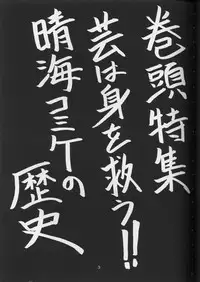 巻頭特集
芸は身を救う!!
晴海コミケの
歴史